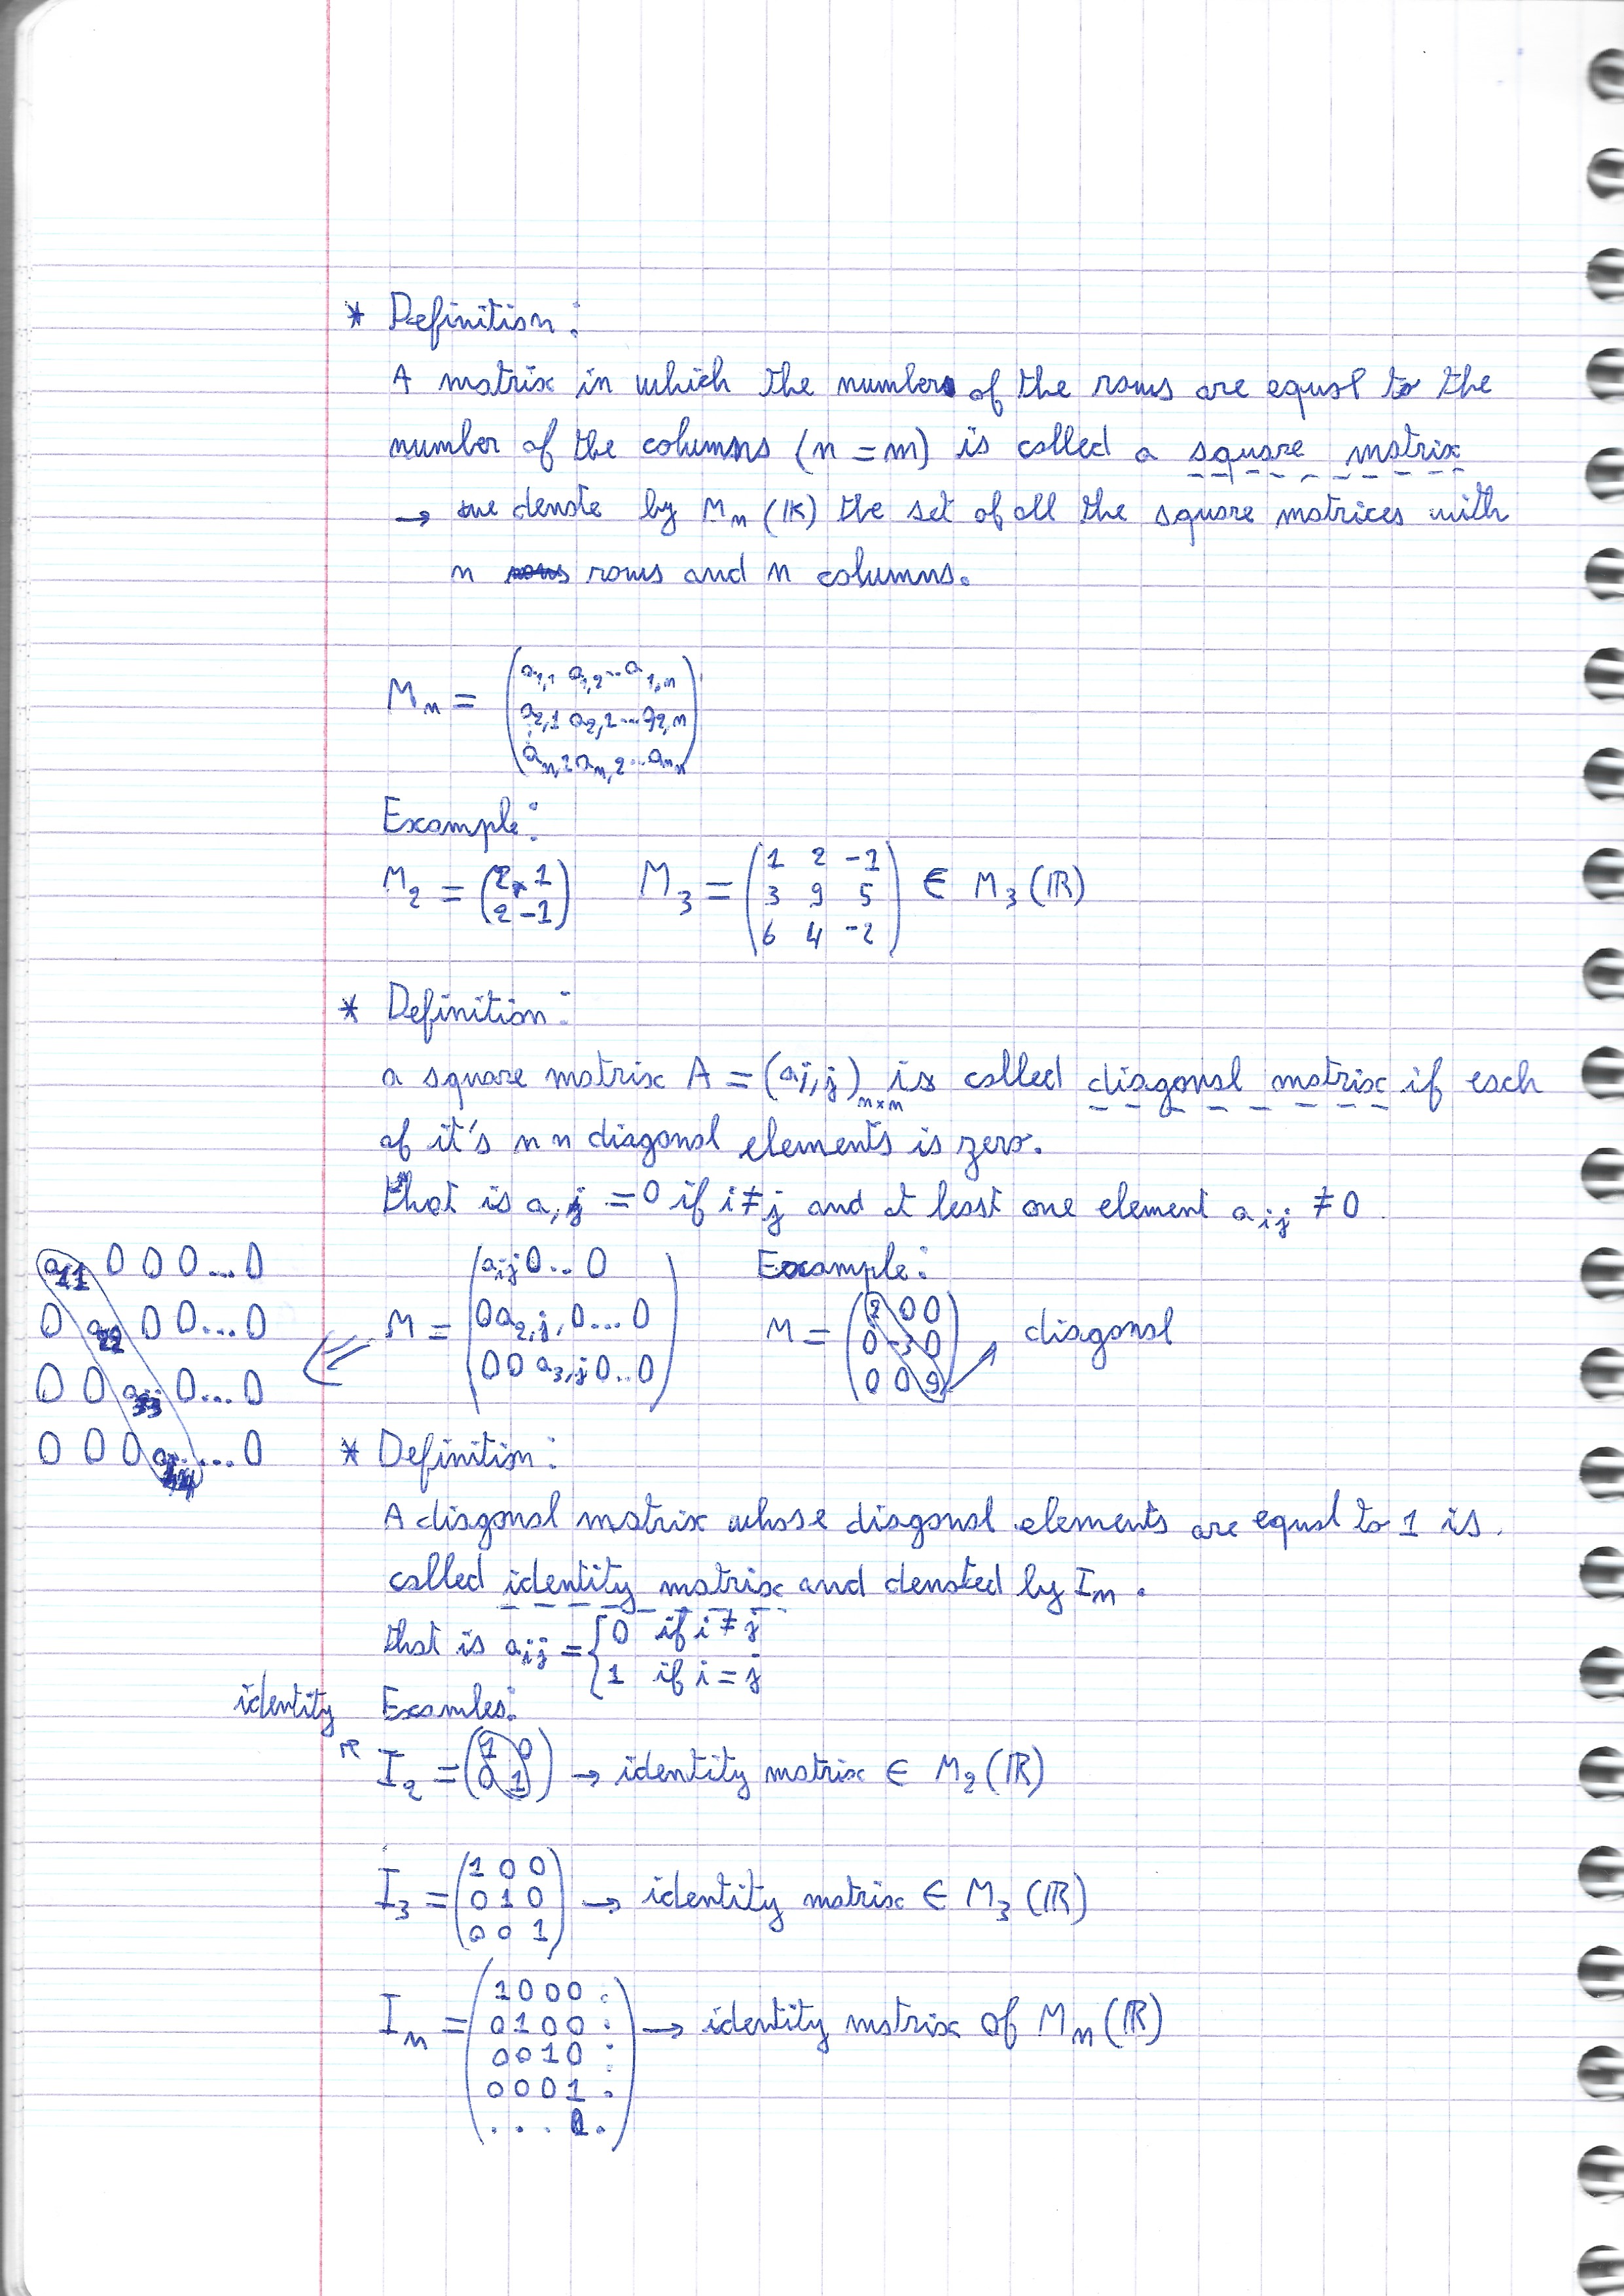 * Definition:
A matrix in which the numbers of the rows are equal to the
number of the columns (n = m) is called a square matrix
→ we denote by Mn (IK) the set of all the square matrices with
n rows and n columns.
Mn = (a1,1 a1,2 ... a1,n
a2,1 a2,2 ... a2,n
an,1 an,2 ... ann)
Example:
M2 = (2 1
2 -1)
M3 = (1 2 -1
3 9 5
6 4 -2) ∈ M3 (IR)
* Definition:
a square matrix A = (ai,j)n×n is called diagonal matrix if each
of it's n n diagonal elements is zero.
that is ai,j = 0 if i ≠ j and at least one element aij ≠ 0
a11 0 0 0 ... 0
0 a22 0 0 ... 0
0 0 a33 0 ... 0
0 0 0 a44 ... 0
M = (aij 0 ... 0
0 a2,j, 0 ... 0
0 0 a3,j 0 .. 0)
Example:
M = (2 0 0
0 -3 0
0 0 9) diagonal
* Definition:
A diagonal matrix whose diagonal elements are equal to 1 is
called identity matrix and denoted by In.
that is aij = {0 if i ≠ j
1 if i = j
identity
Examles:
I2 = (1 0
0 1) → identity matrix ∈ M2 (IR)
I3 = (1 0 0
0 1 0
0 0 1) → identity matrix ∈ M3 (IR)
In = (1 0 0 0 :
0 1 0 0 :
0 0 1 0 :
0 0 0 1 :
. . . 1 .) → identity matrix of Mn (IR)